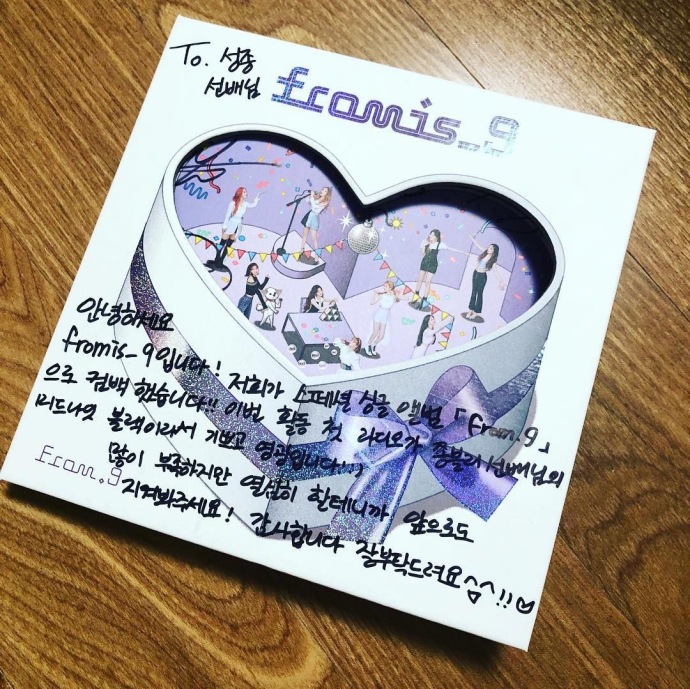 To. 성종
선배님
fromis_9
안녕하세요
fromis_9입니다! 저희가 스페셜 싱글 앨범 「from.9」
으로 컴백 했습니다!! 이번 활동 첫 라디오가 종블리선배님의
미드나잇 블랙이라서 기쁘고 영광입니다!!
많이 부족하지만 열심히 할테니까 앞으로도
지켜봐주세요! 감사합니다 잘부탁드려요^^!!♡
from.9